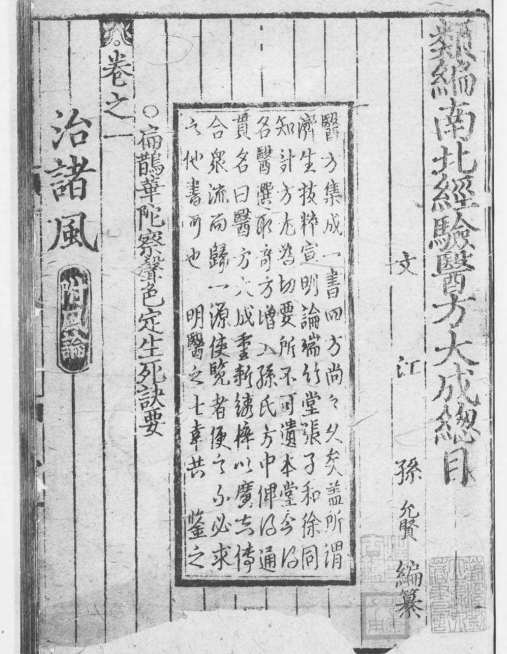 類編南北經驗醫方大成總目
文江 孫允賢 編纂
醫方集成一書四方尚之久矣蓋所謂
濟生拔粹宣明論瑞竹堂張子和徐同
知計方尤為切要所不可遺本堂今得
名醫選取奇方增入孫氏方中俾得通
貫名曰醫方大成重新綉梓以廣其傳
合眾流而歸一源使覽者便之不必求
之他書可也 明醫之士幸共 鑒之
○扁鵲華陀察聲色定生死訣要
卷之一
治諸風 附風論